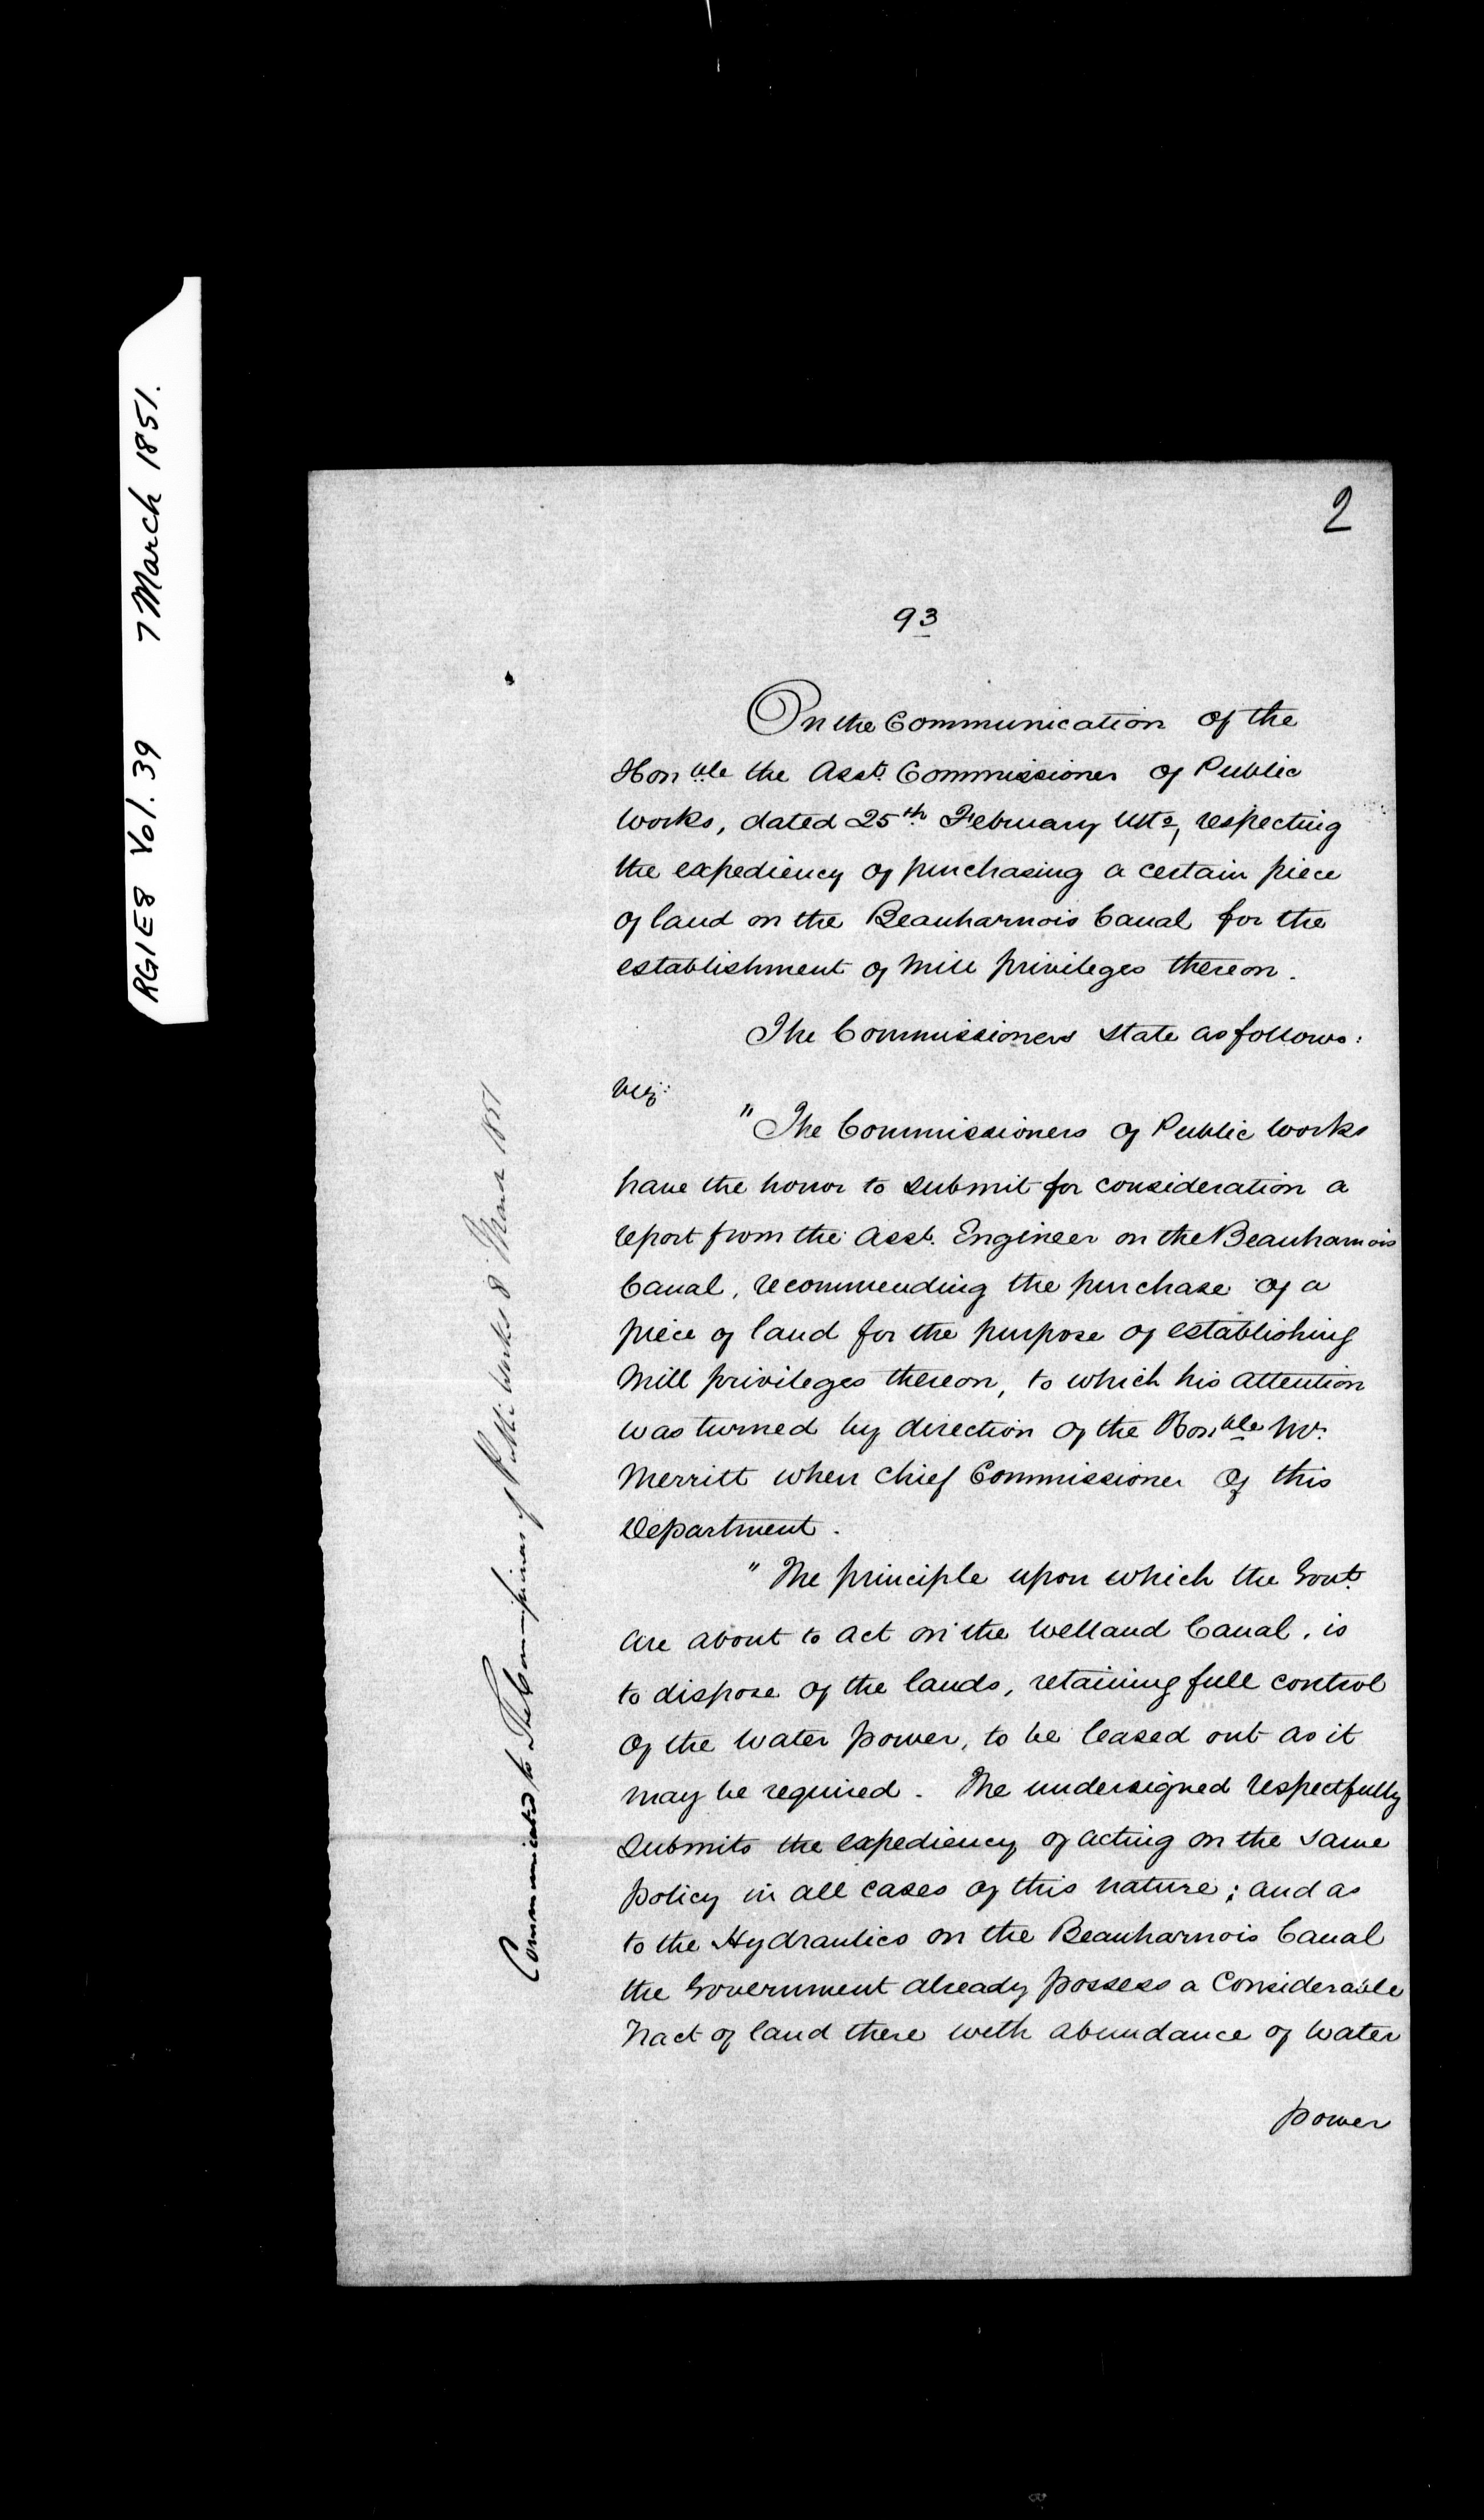 RG1E8 Vol. 39   7 March 1851.
2
93
On the Communication of the
Honble the Asst. Commissioner of Public
Works, dated 25th February Ulto, respecting
the expediency of purchasing a certain piece
of land on the Beauharnois Canal for the
establishment of Mill privileges thereon.
The Commissioners state as follows:
viz:
"The Commissioners of Public Works
have the honor to submit for consideration a
report from the Asst. Engineer on the Beauharnois
Canal, recommending the purchase of a
piece of land for the purpose of establishing
Mill privileges thereon, to which his attention
was turned by direction of the Honble Mr.
Merritt when Chief Commissioner of this
Department.
"The principle upon which the Govt.
are about to act on the Welland Canal, is
to dispose of the lands, retaining full control
of the water power, to be leased out as it
may be required. The undersigned respectfully
submits the expediency of acting on the same
policy in all cases of this nature; and as
to the Hydraulics on the Beauharnois Canal
the Government already possess a Considerable
tract of land there with abundance of water
power
Communicated to The Commissioners of Public Works 8 March 1851